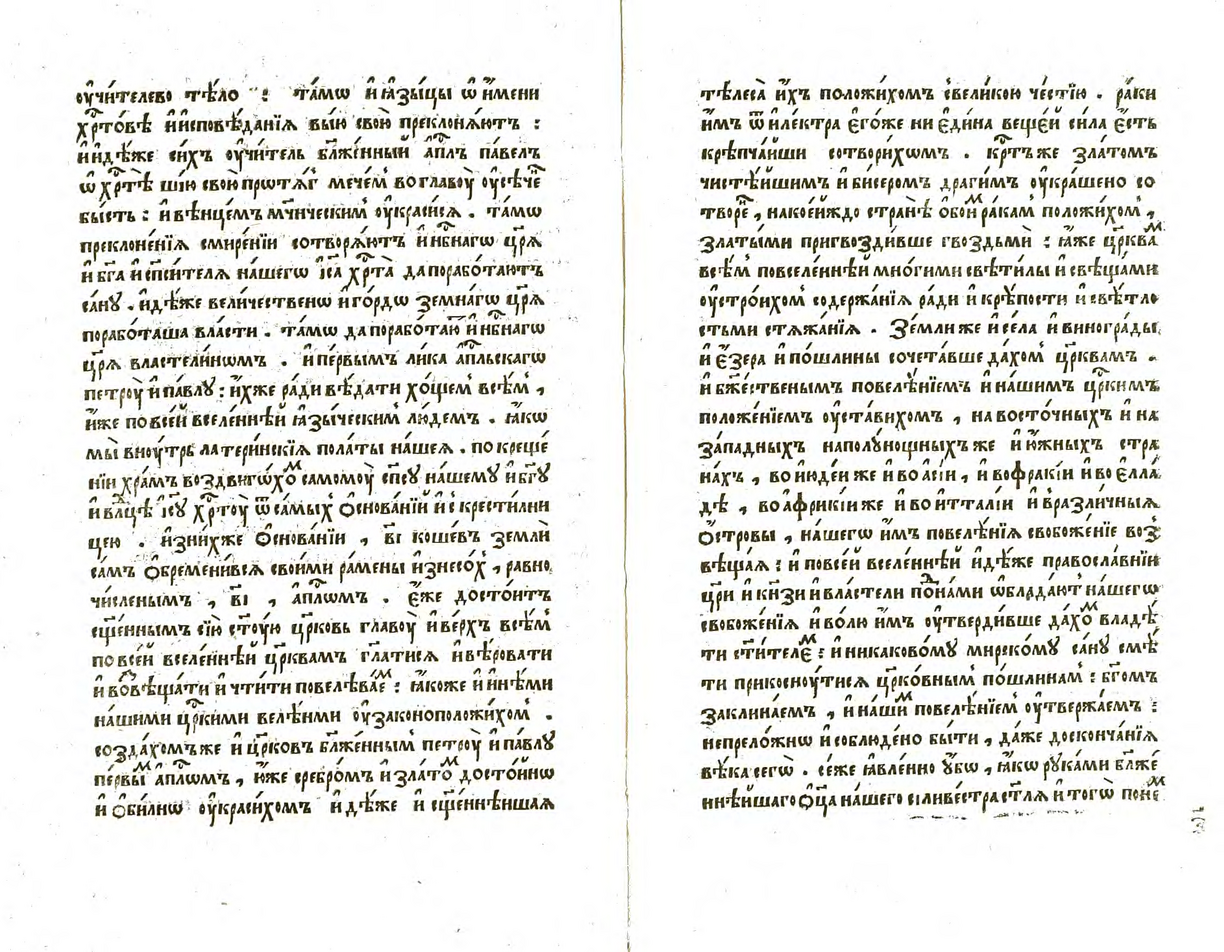 оу҆чи́телево тѣ́ло : та́мѡ и҆ ꙗ҆зы́цы ѡ҆ и҆́мени
хрⷭ҇то́вѣ и҆ и҆сповѣ́данїѧ вы́ю свою̀ преклонѧ́ютъ :
и҆ и҆дѣ́же си́хъ оу҆чи́тель бл҃же́нный а҆пⷭ҇лъ па́велъ
ѡ҆ хрⷭ҇тѣ̀ шїю свою̀ прѡтѧ́г мече́м во главоу̀ оу҆сѣ́че
бы́сть : и҆ вѣнце́мъ мч҃нческим оу҆краси́сѧ . та́мѡ
преклоне́нїѧ смире́нїи сотворѧ́ютъ и҆ нбⷭ҇нагѡ цр҃ѧ̀
и҆ бг҃а и҆ сп҃си́телѧ на́шегѡ і҆с҃а хрⷭ҇та̀ да порабо́таютъ
са́нꙋ . и҆дѣ́же вели́чественѡ и҆ го́рдѡ земна́гѡ цр҃ѧ̀
порабо́таша вла́сти . та́мѡ да порабо́таю и҆ нбⷭ҇нагѡ
цр҃ѧ̀ властели́нѡмъ . и҆ пе́рвымъ ли́ка а҆пⷭ҇льскагѡ
петроу̀ и҆ па́влꙋ : и҆́хже ра́ди вѣ́дати хо́щем всѣ́м ,
и҆́же по все́й вселе́ннѣй ꙗ҆зы́ческим лю́дем . ꙗ҆́кѡ
мы̀ вноу́трь латери́нскїѧ пола́ты на́шеѧ . по креще́
нїи хра́мъ воздвиго́хѡⷨ самомоу̀ сп҃сꙋ на́шемꙋ и҆ бг҃ꙋ
и҆ влⷣцѣ і҆с҃ꙋ хрⷭ҇тоу̀ ѿ са́мых ѻ҆снова́нїй и҆ с крести́лни
цею . и҆з ни́хже ѻ҆снова́нїи , в҃і ко́шевъ землѝ
са́мъ ѻ҆бремени́всѧ свои́ми ра́мены и҆знесо́х , равно
чи́сленымъ , в҃і , а҆пⷭ҇лѡмъ . є҆́же досто́итъ
сщ҃е́ннымъ сїю̀ ст҃оу́ю цр҃ковь главоу̀ и҆ ве́рхъ всѣ́м
по все́й вселе́ннѣй цр҃квамъ гл҃атисѧ и҆ вѣ́ровати
и҆ во́вѣща́ти и҆ чти́ти повелѣва́еⷨ : ꙗ҆́коже и҆ и҆нѣ́ми
на́шими црⷭ҇кими велѣ́нми оу҆законоположи́хом .
созда́хомъже и҆ цр҃ковь бл҃же́нным петроу̀ и҆ па́влꙋ
пе́рвыⷨ а҆пⷭ҇лѡмъ , ю҆́же сребро́мъ и҆ зла́тоⷨ досто́йнѡ
и҆ ѻ҆би́лнѡ оу҆краси́хомъ и҆дѣ́же и҆ сщ҃е́ннѣйшаѧ
тѣлеса̀ и҆́хъ положи́хомъ с вели́кою че́стїю . ра́ки
и҆́мъ ѿ и҆ле́ктра є҆го́же ни є҆ди́на веще́й си́ла є҆́сть
крѣпча́йши сотвори́хѡмъ . крⷭ҇тъ же зла́томъ
чистѣ́йшимъ и҆ би́сером драги́мъ оу҆кра́шено со
творе́ , на ко́ейждо странѣ̀ ѻ҆бо́иⷨ ра́кам положи́хом ,
златы́ми пригвозди́вше гвоздьмѝ : ꙗ҆́же цр҃кваⷨ
всѣ́м повселе́ннѣй мно́гими свѣти́лы и҆ свѣща́ми
оу҆стро́ихом содержа́нїѧ ра́ди и҆ крѣ́пости и҆ свѣ́тло
стьми стѧжа́нїѧ . Земли́ же и҆ се́ла и҆ виногра́ды
и҆ є҆зе́ра и҆ по́шлины сочета́вше да́хом цр҃квамъ .
и҆ бж҃е́ственымъ повелѣ́нїемъ и҆ на́шимъ црⷭ҇кимъ
положе́нїемъ оу҆ста́вихомъ , на восто́чныхъ и҆ на
за́падныхъ на полꙋ́нощныхъ же и҆ ю҆́жныхъ стра
на́хъ , во и҆юде́и же и҆ во а҆сі́и , и҆ во фракі́и и҆ во є҆лла́
дѣ , во а҆фрикі́и же и҆ во и҆тталі́и и҆ в разли́чныѧ
ѻ҆́стровы , на́шегѡ и҆́мъ повелѣ́нїѧ свобоже́нїе воз
вѣща́ѧ : и҆ по все́й вселе́ннѣй и҆дѣ́же правосла́внїи
цр҃и и҆ кнѧ҃зи и҆ власте́ли поⷣ на́ми ѡ҆блада́ют на́шегѡ
свобоже́нїѧ и҆ во́лю и҆́мъ оу҆тверди́вше да́хоⷨ владѣ́
ти ст҃и́телеⷨ : и҆ никакова́мꙋ мирско́мꙋ са́нꙋ смѣ́
ти прикосноу́тисѧ цр҃ко́вным по́шлинам : бг҃омъ
заклина́емъ , и҆ на́шиⷨ повелѣ́нїем оу҆твержа́емъ :
непрело́жнѡ и҆ соблюде́но бы́ти , да́же до сконча́нїѧ
вѣ́ка сегѡ̀ . се́же ꙗ҆вле́нно ᲂу҆́бѡ , ꙗ҆́кѡ рꙋка́ми бл҃же́
ннѣ́йшаго ѻ҆ц҃а на́шего силиве́стра ст҃лѧ и҆ тогѡ̀ по не́ⷨ